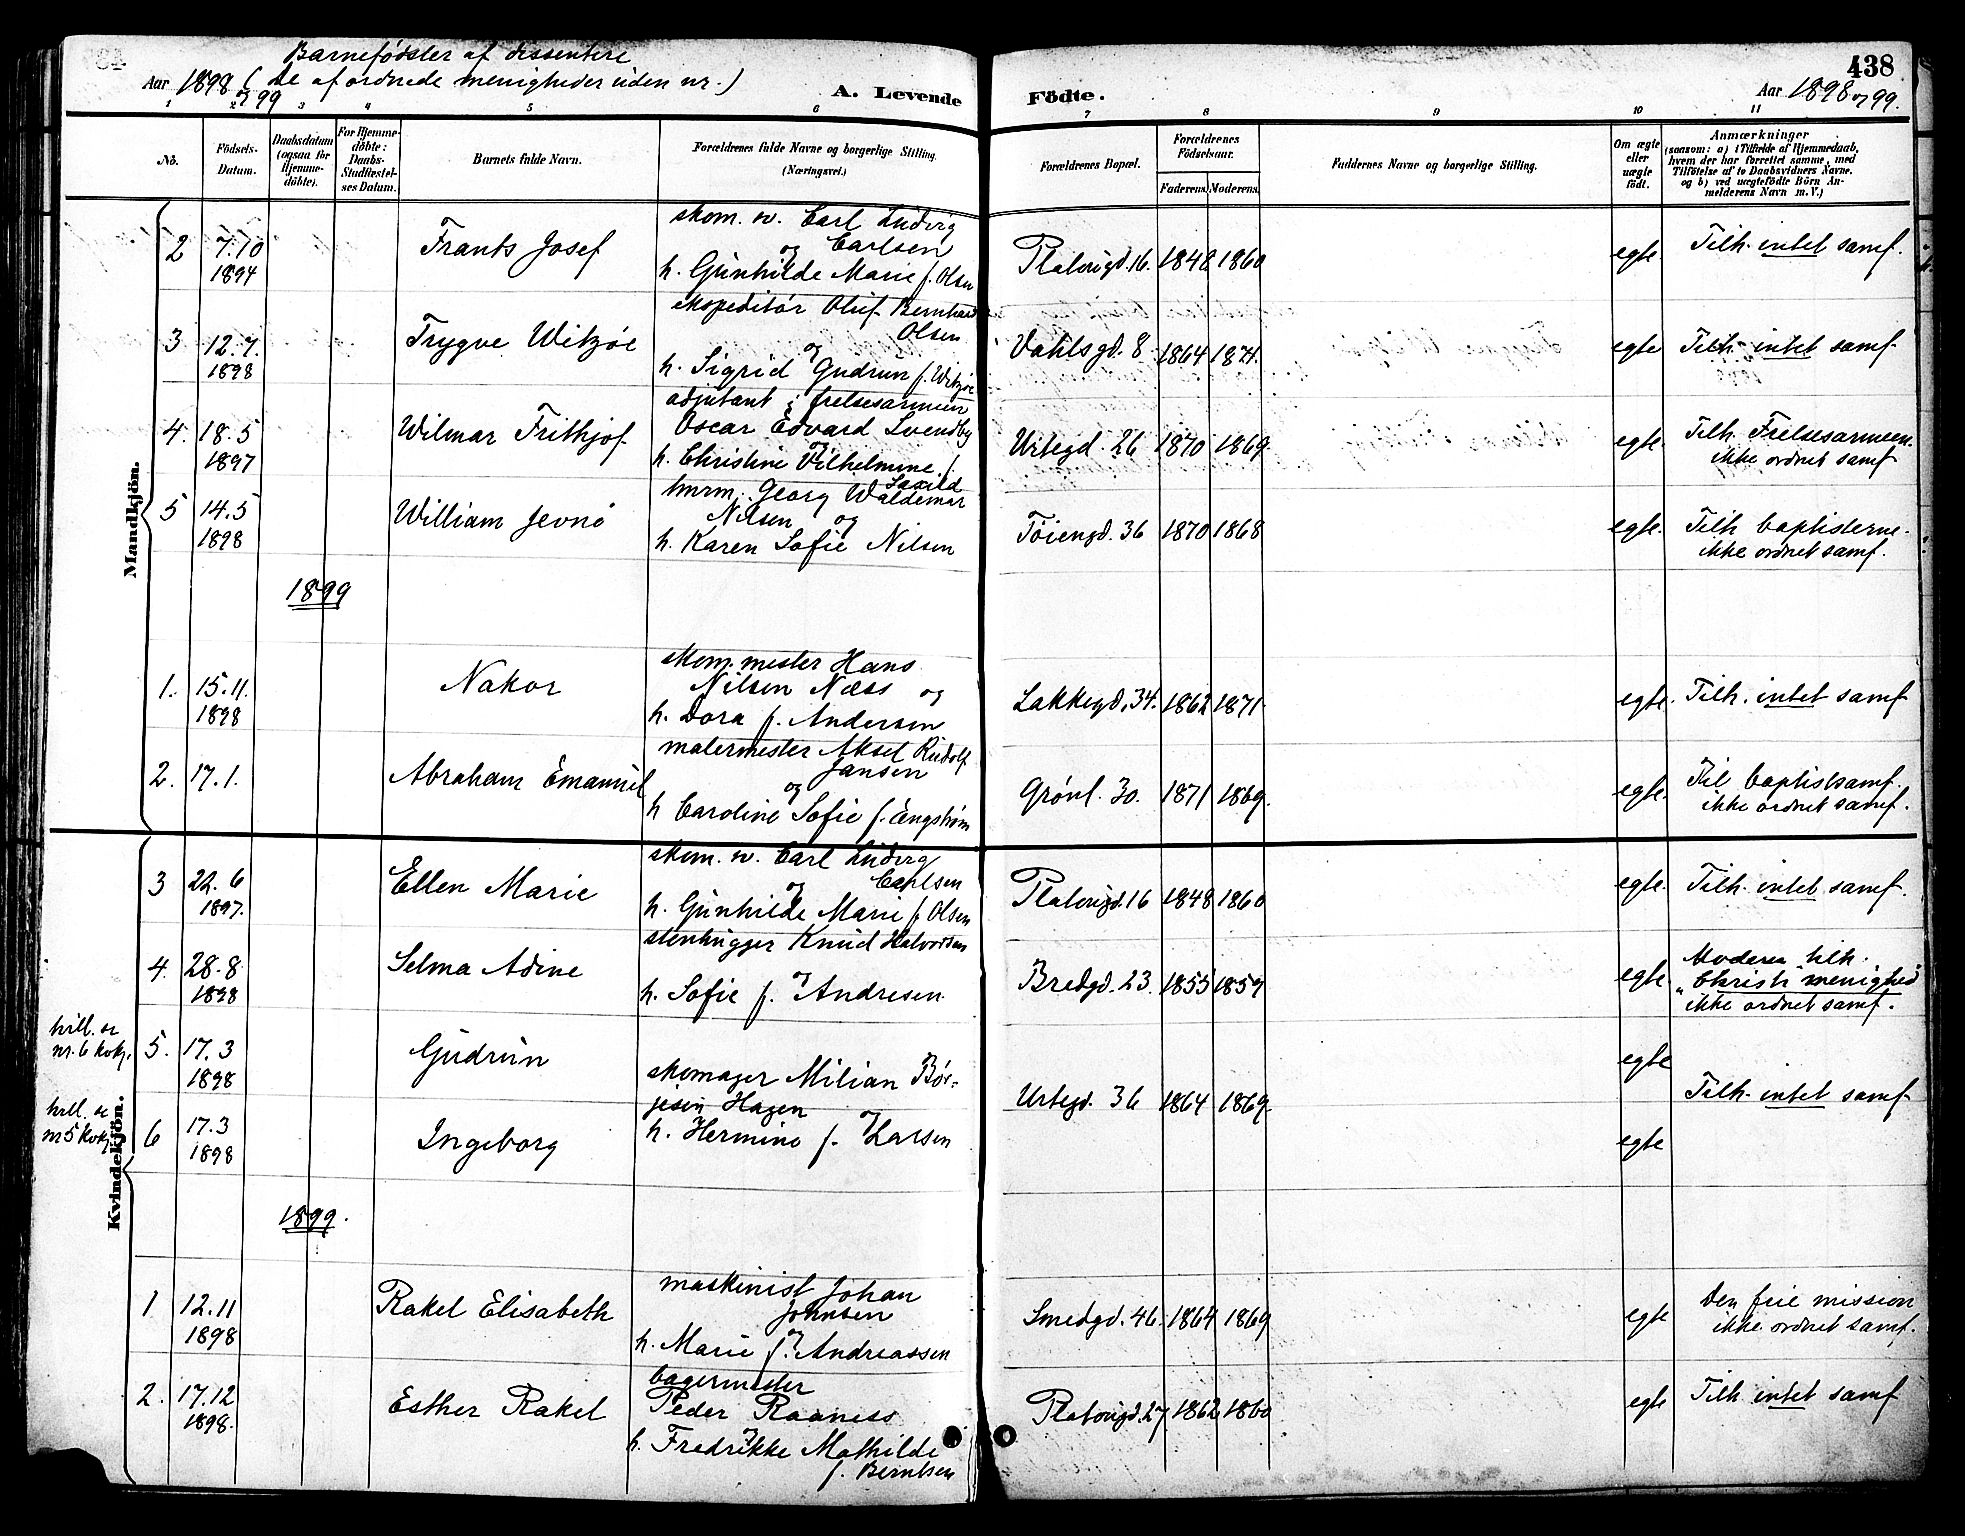 Barnefödsler af dissentere
Aar 1898 (de af ordnede menigheder uden nr.)
og 99
A. Levende Födte.
438
Aar 1898 og 99.
1 2 3 4 5 6 7 8 9 10 11
No.
Födsels-
Datum.
Daabsdatum
(ogsaa for
Hjemme-
döbte).
For Hjemme-
döbte:
Daabs-
Stadfæstel-
ses Datum.
Barnets fulde Navn.
Forældrenes fulde Navne og borgerlige Stilling.
(Næringsvei.)
Forældrenes Bopæl.
Forældrenes
Födselsaar.
Faderens. Moderens.
Faddernes Navne og borgerlige Stilling.
Om ægte
eller
uægte
födt.
Anmærkninger
(saasom: a) i Tilfælde af Hjemmedaab,
hvem der har forrettet samme, med
Tilföielse af to Daabsvidners Navne,
og b) ved uægtefödte Börn An-
melderens Navn m. V.)
Mandkjön.
2 7.10
1894
Frants Josef
skom. sv. Carl Ludvig
Carlsen
og
h. Gunhilde Marie f. Olsen
Platousgd. 16. 1848 1860
egte
Tilh. intet samf.
3 12.7.
1898
Trygve Witzøe
ekspeditør Oluf Bernhard
Olsen
og
h. Sigrid Gudrun f. Witzøe
Vahlsgd. 8 1864 1874.
egte
Tilh. intet samf.
4. 18.5
1897
Wilmar Frithjof
adjutant i frelsesarmeen
Oscar Edvard Svendby
og
h. Christine Vilhelmine f.
Saxild
Urtegd. 26 1870 1869.
egte
Tilh. Frelsesarmeen.
ikke ordnet samf.
5 14.5
1898
William Jevnø
hmrm. Georg Waldemar
Nilsen og
h. Karen Sofie Nilsen
Tøiengd. 36 1870 1868
egte.
Tilh. baptisterne.
ikke ordnet samf.
1899
1. 15.11.
1898
Nakor
skom. mester Hans
Nilsen Næss og
h. Dora f. Andersen
Lakkegd. 34. 1862 1871
egte.
Tilh. intet samf.
2. 17.1.
Abraham Emanuel
malermester Aksel Rudolf
Jansen
og
h Caroline Sofie f. Engstrøm
Grønl. 30. 1871 1869.
egte.
Til baptistsamf.
ikke ordnet samf.
Kvindekjön.
3 22.6
1897.
Ellen Marie
skom. sv. Carl Ludvig
Carlsen
og
h. Gunhilde Marie f. Olsen
Platousgd. 16 1848 1860
egte.
Tilh. intet samf.
4. 28.8
1898
Selma Adine
stenhugger Knud Halvorsen
og
h. Sofie f. Andresen
Bredgd. 23. 1855 1859
egte.
Moderen tilh.
"Christi menighed"
ikke ordnet samf.
tvill. se
nr. 6 kvkj.
5. 17.3
1898
Gudrun
skomager Milian Bør-
jesen Hagen
og
h. Hermine f. Larsen
Urtegd. 36 1864 1869.
egte
Tilh. intet samf.
tvill. se
nr 5 kvkj.
6 17.3
1898
Ingeborg
egte
1899.
1 12.11
1898
Rakel Elisabeth
maskinist Johan
Johnsen
og
h. Marie f. Andreassen
Smedgd. 46. 1864 1869
egte
Den frie mission
ikke ordnet samf.
2. 17.12
1898.
Esther Rakel
bagermester
Peder Raaness
og
h. Fredrikke Mathilde
f. Berntsen
Platousgd. 27. 1862 1860
egte
Tilh intet samf